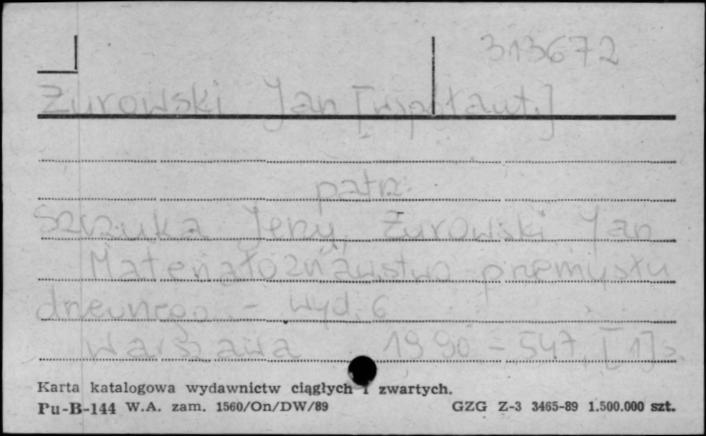 313672
Żurowski Jan [współaut.]
patrz:
Szczuka Jerzy, Żurowski Jan
Materiałoznawstwo przemysłu
drzewnego. - Wyd. 6
Warszawa 1990 - 547, [1] s.
Karta katalogowa wydawnictw ciągłych i zwartych.
Pu-B-144 W.A. zam. 1560/On/DW/89 GZG Z-3 3465-89 1.500.000 szt.